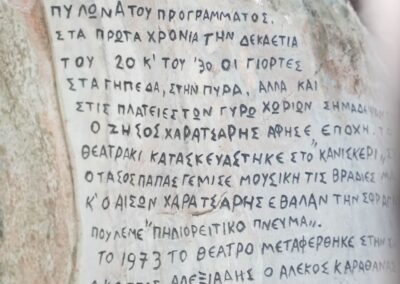 ΠΥΛΩΝΑ ΤΟΥ ΠΡΟΓΡΑΜΜΑΤΟΣ.
ΣΤΑ ΠΡΩΤΑ ΧΡΟΝΙΑ ΤΗΝ ΔΕΚΑΕΤΙΑ
ΤΟΥ 20 Κ' ΤΟΥ '30 ΟΙ ΓΙΟΡΤΕΣ
ΣΤΑ ΓΗΠΕΔΑ, ΣΤΗΝ ΠΥΡΑ, ΑΛΛΑ ΚΑΙ
ΣΤΙΣ ΠΛΑΤΕΙΕΣ ΤΩΝ ΓΥΡΩ ΧΩΡΙΩΝ
Ο ΖΗΣΟΣ ΧΑΡΑΤΣΑΡΗΣ ΑΦΗΣΕ ΕΠΟΧΗ.
ΘΕΑΤΡΑΚΙ ΚΑΤΑΣΚΕΥΑΣΤΗΚΕ ΣΤΟ "ΚΑΝΙΣΚΕΡΙ"
Ο ΤΑΣΟΣ ΠΑΠΑΣ ΓΕΜΙΣΕ ΜΟΥΣΙΚΗ ΤΙΣ ΒΡΑΔΙΕΣ
Κ' Ο ΑΙΣΩΝ ΧΑΡΑΤΣΑΡΗΣ ΕΒΑΛΑΝ ΤΗΝ
ΠΟΥ ΛΕΜΕ "ΠΗΛΙΟΡΕΙΤΙΚΟ ΠΝΕΥΜΑ".
ΤΟ 1973 ΤΟ ΘΕΑΤΡΟ ΜΕΤΑΦΕΡΘΗΚΕ ΣΤΗΝ
ΑΛΕΞΙΑΔΗΣ Ο ΑΛΕΚΟΣ